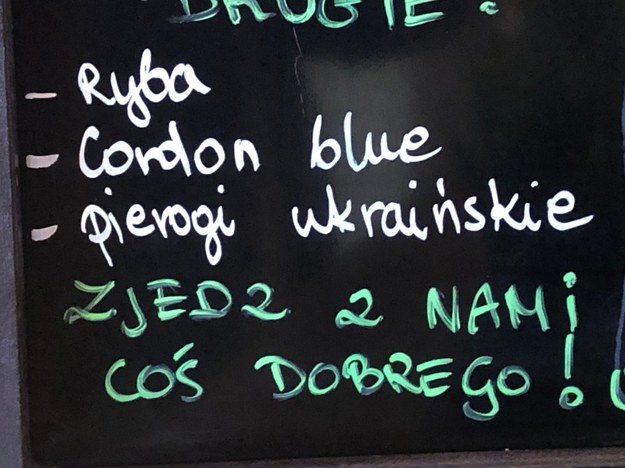 DRUGIE:
- Ryba
- Cordon blue
- pierogi ukraińskie
ZJEDZ Z NAMi
COŚ DOBREGO!